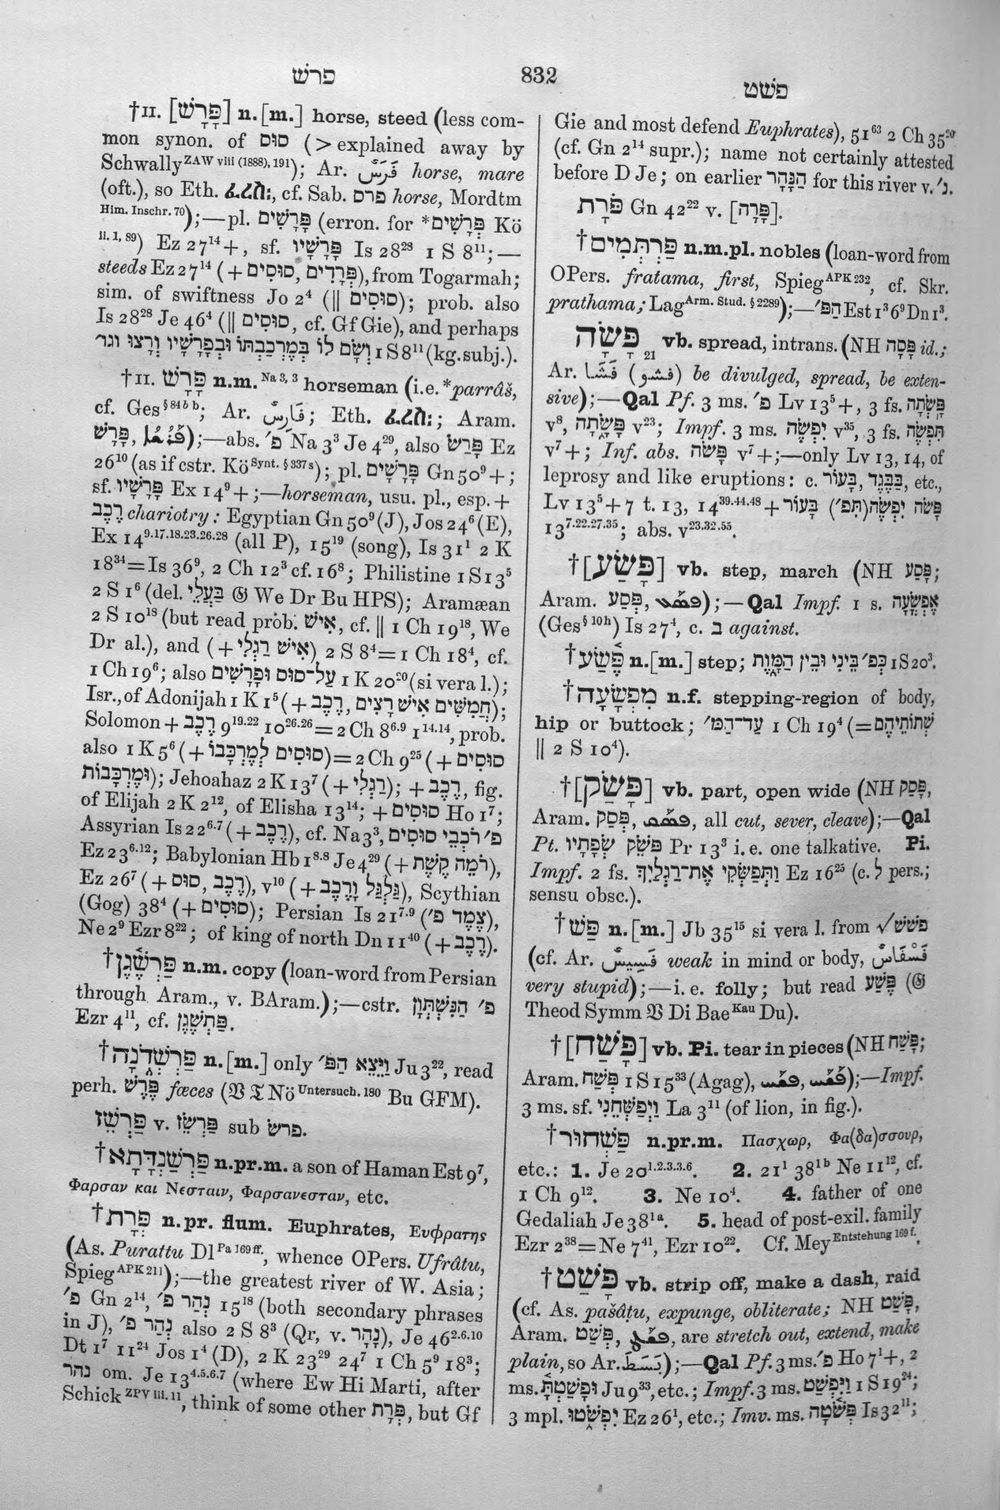 פרשׁ
832
פשׂט
†II. [פָּרָשׁ] n.[m.] horse, steed (less com-
mon synon. of סוּס (> explained away by
Schwally ZAW viii (1888), 191); Ar. فَرَسٌ horse, mare
(oft.), so Eth. ፈረስ፡, cf. Sab. פרס horse, Mordtm
Him. Inschr. 70);—pl. פָּרָשִׁים (erron. for *פְּרָשִׁים Kö
II. 1, 89) Ez 27¹⁴+, sf. פָּרָשָׁיו Is 28²⁸ 1 S 8¹¹;—
steeds Ez 27¹⁴ (+ סוּסִים, פְּרָדִים), from Togarmah;
sim. of swiftness Jo 2⁴ (|| סוּסִים); prob. also
Is 28²⁸ Je 46⁴ (|| סוּסִים, cf. Gf Gie), and perhaps
וְשָׂם לוֹ בְּמֶרְכַּבְתּוֹ וּבְפָרָשָׁיו וְרָצוּ וגו׳ 1 S 8¹¹ (kg. subj.).
†II. פָּרָשׁ n.m. Na 3, 3 horseman (i.e. *parrâš,
cf. Ges § 84b b; Ar. فَارِسٌ; Eth. ፈረሰ፡; Aram.
פָּרָשׁ, ܦܳܪܳܫܳܐ);—abs. פ׳ Na 3³ Je 4²⁹, also פָּרַשׁ Ez
26¹⁰ (as if cstr. Kö Synt. § 337 s); pl. פָּרָשִׁים Gn 50⁹+;
sf. פָּרָשָׁיו Ex 14⁹+;—horseman, usu. pl., esp. +
רֶכֶב chariotry: Egyptian Gn 50⁹ (J), Jos 24⁶ (E),
Ex 14⁹·¹⁷·¹⁸·²³·²⁶·²⁸ (all P), 15¹⁹ (song), Is 31¹ 2 K
18³⁴=Is 36⁹, 2 Ch 12³ cf. 16⁸; Philistine 1 S 13⁵
2 S 1⁶ (del. בַּעֲלֵי 𝔊 We Dr Bu HPS); Aramæan
2 S 10¹⁸ (but read prob. אִישׁ, cf. || 1 Ch 19¹⁸, We
Dr al.), and (+ אִישׁ רַגְלִי) 2 S 8⁴=1 Ch 18⁴, cf.
1 Ch 19⁶; also עַל־סוּס וּפָרָשִׁים 1 K 20²⁰ (si vera l.);
Isr., of Adonijah 1 K 1⁵ (+ רֶכֶב, חֲמִשִּׁים אִישׁ רָצִים);
Solomon + רֶכֶב 9¹⁹·²² 10²⁶·²⁶=2 Ch 8⁶·⁹ 1¹⁴·¹⁴, prob.
also 1 K 5⁶ (+ סוּסִים לְמֶרְכָּבוֹ)=2 Ch 9²⁵ (+ סוּסִים
וּמַרְכָּבוֹת); Jehoahaz 2 K 13⁷ (+ רַגְלִי); + רֶכֶב, fig.
of Elijah 2 K 2¹², of Elisha 13¹⁴; + סוּסִים Ho 1⁷;
Assyrian Is 22⁶·⁷ (+ רֶכֶב), cf. Na 3³, פ׳ רֹכְבֵי סוּסִים
Ez 23⁶·¹²; Babylonian Hb 1⁸·⁸ Je 4²⁹ (+ רֹמֵה קֶשֶׁת),
Ez 26⁷ (+ רֶכֶב, סוּס), v¹⁰ (+ גַּלְגַּל וָרֶכֶב), Scythian
(Gog) 38⁴ (+ סוּסִים); Persian Is 21⁷·⁹ (צֶמֶד פ׳),
Ne 2⁹ Ezr 8²²; of king of north Dn 11⁴⁰ (+ רֶכֶב).
†פַּרְשֶׁגֶן n.m. copy (loan-word from Persian
through Aram., v. BAram.);—cstr. פ׳ הַנִּשְׁתְּוָן
Ezr 4¹¹, cf. פַּתְשֶׁגֶן.
†פַּרְשְׁדֹנָה n.[m.] only וַיֵּצֵא הַפּ׳ Ju 3²², read
perh. פֶּרֶשׁ fæces (𝔙 𝔗 Nö Untersuch. 180 Bu GFM).
פַּרְשֵׁז v. פַּרְשֵׂז sub פרשׂ.
†פַּרְשַׁנְדָּתָא n.pr.m. a son of Haman Est 9⁷,
Φαρσαν και Νεσταιν, Φαρσανεσταν, etc.
†פְּרָת n.pr. flum. Euphrates, Ευφρατης
(As. Purattu Dl Pa 169 ff., whence OPers. Ufrâtu,
Spieg APK 211);—the greatest river of W. Asia;
פ׳ Gn 2¹⁴, נְהַר פ׳ 15¹⁸ (both secondary phrases
in J), נְהַר פ׳ also 2 S 8³ (Qr, v. נָהָר), Je 46²·⁶·¹⁰
Dt 1⁷ 11²⁴ Jos 1⁴ (D), 2 K 23²⁹ 24⁷ 1 Ch 5⁹ 18³;
נהר om. Je 13⁴·⁵·⁶·⁷ (where Ew Hi Marti, after
Schick ZPV iii. 11, think of some other פְּרָת, but Gf
Gie and most defend Euphrates), 51⁶³ 2 Ch 35²⁰
(cf. Gn 2¹⁴ supr.); name not certainly attested
before D Je; on earlier הַנָּהָר for this river v. נ׳.
פֹּרָת Gn 49²² v. [פָּרָה].
†פַּרְתְּמִים n.m.pl. nobles (loan-word from
OPers. fratama, first, Spieg APK 232, cf. Skr.
prathama; Lag Arm. Stud. § 2289);—הַפּ׳ Est 1³ 6⁹ Dn 1³.
פָּשָׂה 21 vb. spread, intrans. (NH פָּסָה id.;
Ar. فَشَا (فشو) be divulged, spread, be exten-
sive);—Qal Pf. 3 ms. פ׳ Lv 13⁵+, 3 fs. פָּשְׂתָה
v⁸, פָּשָׂתָה v²³; Impf. 3 ms. יִפְשֶׂה v³⁵, 3 fs. תִּפְשֶׂה
v⁷+; Inf. abs. פָּשֹׂה v⁷+;—only Lv 13, 14, of
leprosy and like eruptions: c. בַּבֶּגֶד, בָּעוֹר, etc.,
Lv 13⁵+7 t. 13, 14³⁹·⁴⁴·⁴⁸ + פָּשֹׂה יִפְשֶׂה(תִּפ׳) בָּעוֹר
13⁷·²²·²⁷·³⁵; abs. v²³·³²·⁵⁵.
†[פָּשַׂע] vb. step, march (NH פָּסַע;
Aram. פְּסַע, ܦܣܰܥ);—Qal Impf. 1 s. אֶפְשְׂעָה
(Ges § 10 h) Is 27⁴, c. בְּ against.
†פֶּשַׂע n.[m.] step; כְּפ׳ בֵּינִי וּבֵין הַמָּוֶת 1 S 20³.
†מִפְשָׂעָה n.f. stepping-region of body,
hip or buttock; עַד־הַמּ׳ 1 Ch 19⁴ (=שְׁתוֹתֵיהֶם
|| 2 S 10⁴).
†[פָּשַׂק] vb. part, open wide (NH פָּסַק,
Aram. פְּסַק, ܦܣܰܩ, all cut, sever, cleave);—Qal
Pt. פֹּשֵׂק שְׂפָתָיו Pr 13³ i.e. one talkative. Pi.
Impf. 2 fs. וַתְּפַשְּׂקִי אֶת־רַגְלַיִךְ Ez 16²⁵ (c. לְ pers.;
sensu obsc.).
†פַּשׁ n.[m.] Jb 35¹⁵ si vera l. from √פשׁשׁ
(cf. Ar. فَسِيسٌ weak in mind or body, فَسْفَاسٌ
very stupid);—i.e. folly; but read פֶּשַׁע (𝔊
Theod Symm 𝔙 Di Bae Kau Du).
†[פָּשַׁח] vb. Pi. tear in pieces (NH פָּשַׁח;
Aram. פְּשַׁח 1 S 15³³ (Agag), ܦܫܰܚ, ܦܰܫܰܚ);—Impf.
3 ms. sf. וַיְפַשְּׁחֵנִי La 3¹¹ (of lion, in fig.).
†פַּשְׁחוּר n.pr.m. Πασχωρ, Φα(δα)σσουρ,
etc.: 1. Je 20¹·²·³·³·⁶. 2. 21¹ 38¹ᵇ Ne 11¹², cf.
1 Ch 9¹². 3. Ne 10⁴. 4. father of one
Gedaliah Je 38¹ᵃ. 5. head of post-exil. family
Ezr 2³⁸=Ne 7⁴¹, Ezr 10²². Cf. Mey Entstehung 169 f.
†פָּשַׁט vb. strip off, make a dash, raid
(cf. As. pašâṭu, expunge, obliterate; NH פָּשַׁט,
Aram. פְּשַׁט, ܦܫܰܛ, are stretch out, extend, make
plain, so Ar. بَسَطَ);—Qal Pf. 3 ms. פ׳ Ho 7¹+, 2
ms. וּפָשַׁטְתָּ Ju 9³³, etc.; Impf. 3 ms. וַיִּפְשַׁט 1 S 19²⁴;
3 mpl. יִפְשֹׁטוּ Ez 26¹, etc.; Imv. ms. פְּשֹׁטָה Is 32¹¹;